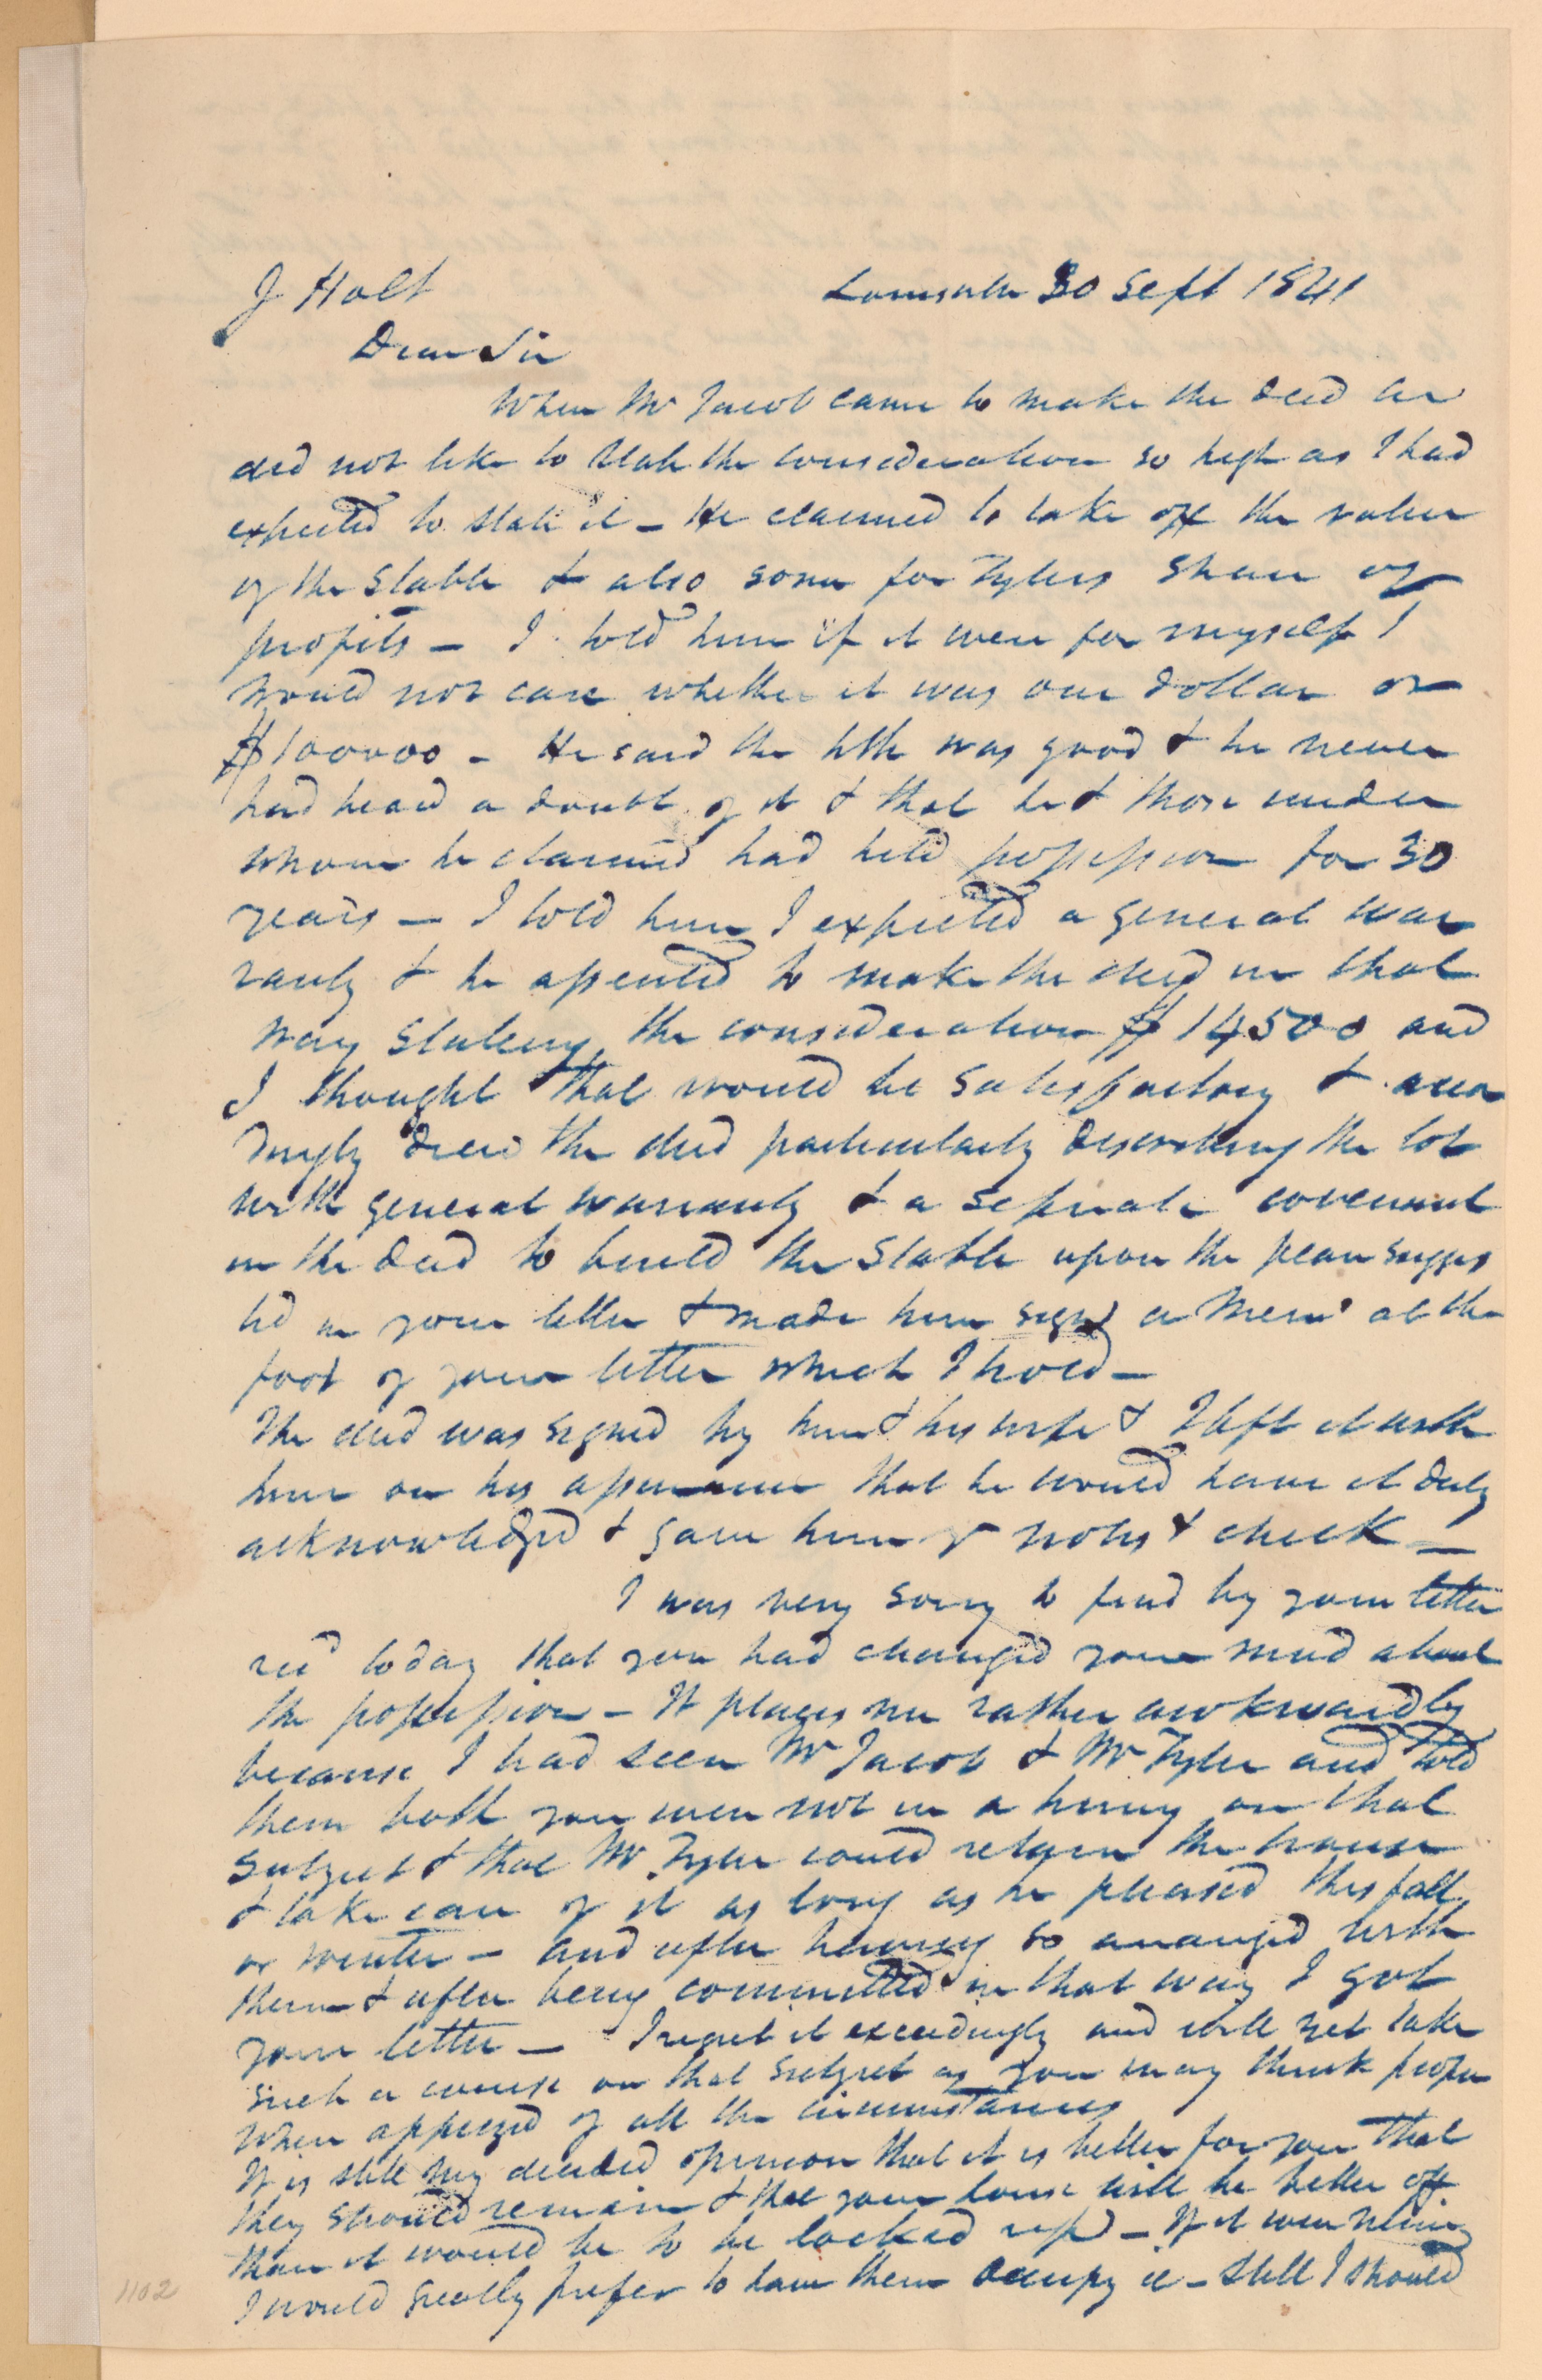 J Holt
Louisville 30 Sept 1841
Dear Sir
When Mr Jacob came to make the deed he
did not like to state the consideration so high as I had
expected to state it – He claimed to take off the value
of the stable & also some for Tylers share of
profits – I told him if it were for myself I
would not care whether it was one dollar or
$100000 – He said the title was good & he never
had heard a doubt of it & that he & those under
whom he claimed had held possession for 30
years – I told him I expected a general war
ranty & he assented to make the deed in that
way stating the consideration $14500 and
I thought that would be satisfactory & accor
dingly drew the deed particularly describing the lot
with general warranty & a seperate covenant
in the deed to build the stable upon the plan sugges
ted in your letter & made him sign a Memo at the
foot of your letter which I hold –
The deed was signed by him & his wife & I left it with
him on his assurance that he would have it duly
acknowledged & gave him yr notes & check –
I was very sorry to find by your letter
recd today that you had changed your mind about
the possession – It places me rather awkwardly
because I had seen Mr Jacob & Mr Tyler and told
them both you were not in a hurry on that
subject & that Mr Tyler could retain the house
& take care of it as long as he pleased this fall
or winter – and after having so arranged with
them & after being committed in that way I got
your letter – I regret it exceedingly and will yet take
such a course on that subject as you may think proper
when apprized of all the circumstances
It is still my decided opinion that it is better for you that
they should remain & that your house will be better off
than it would be to be locked up – If it were mine
I would greatly prefer to have them occupy it – still I should
1102